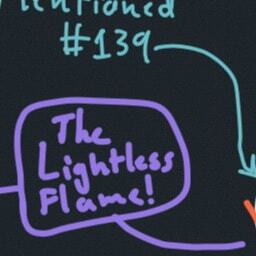 mentioned
#139
The
Lightless
Flame!